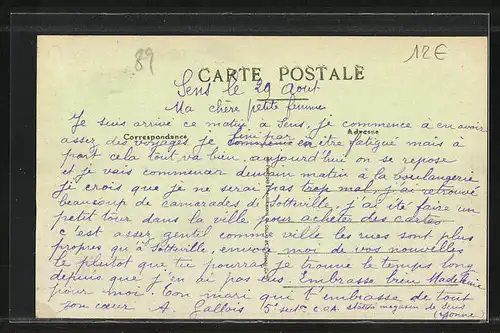 89
12€
CARTE POSTALE
Sens le 29 Aout
Ma chère petite femme
Je suis arrivé ce matin à Sens, je commence à en avoir
Correspondance
Adresse
assez des voyages je fini par en être fatigué mais à
part cela tout va bien. aujourd'hui on se repose
et je vais commencer demain matin à la boulangerie
je crois que je ne serai pas trop mal, j'ai retrouvé
beaucoup de camarades de Sotteville, j'ai été faire un
petit tour dans la ville pour acheter des cartes
c'est assez gentil comme ville les rues sont plus
propres qu'à Sotteville, envois moi de vos nouvelles
le plutot que tu pourras je trouve le temps long
depuis que j'en ai pas eus. Embrasse bien Madeleine
pour moi. Ton mari qui t'embrasse de tout
son cœur A. Gallois 5e sect. C.O.A. station magasin de Sens
(Yonne)